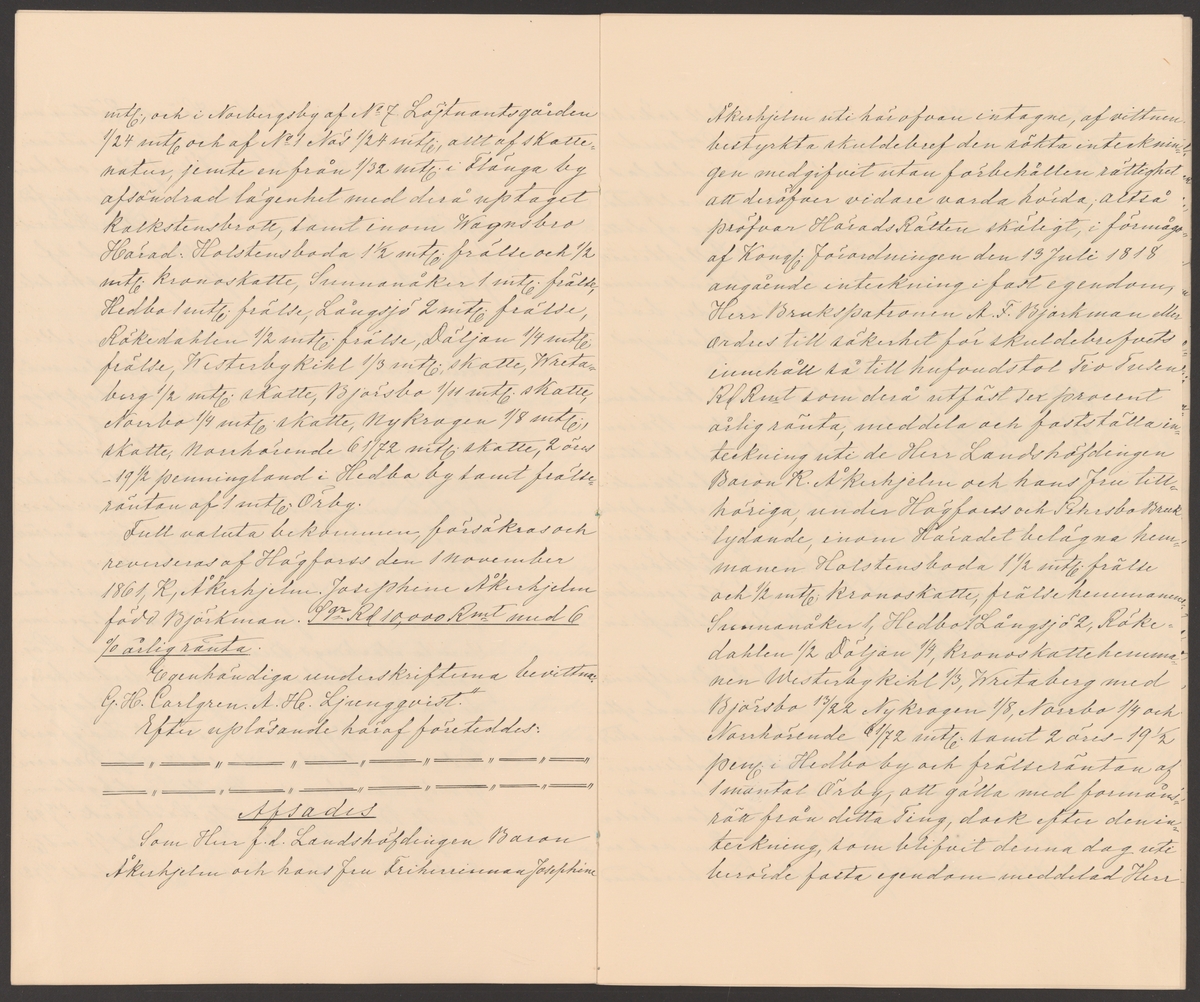 mtl; och i Norbergsby af No 7 Löjtnantsgården
1/24 mtl och af No 1 Näs 1/24 mtl; allt af skatte-
natur, jemte en från 1/32 mtl; i Flänga by
afsöndrad lägenhet med derå uptaget
kalkstensbrott, samt inom Wagnsbro
Härad: Holstensboda 1 1/2 mtl; frälse och 1/2
mtl; kronoskatte, Sunnanåker 1 mtl; frälse,
Hedbo 1 mtl; frälse, Långsjö 2 mtl; frälse,
Rökedahlen 1/2 mtl; frälse, Döljan 1/4 mtl;
frälse, Westerbykihl 1/3 mtl; skatte, Wreta-
berg 1/2 mtl; skatte, Björsbo 1/11 mtl; skatte,
Norrbo 1/4 mtl; skatte, Nykrogen 1/8 mtl;
skatte, Norrhörende 61/72 mtl; skatte, 2 öres
- 19 1/2 penningland i Hedbo by samt frälse-
räntan af 1 mtl; Örby.
Full valuta bekommen, försäkras och
reverseras af Högforss den 1 November
1861, K, Åkerhjelm. Josephine Åkerhjelm
född Björkman. Sgr Rd 10,000 Rmt med 6
% årlig ränta.
Egenhändiga underskrifterna bevittna:
G. H. Carlgren. A. H. Ljungqvist."
Efter upläsande häraf företeddes:
— " — " — " — " — " — " — "
— " — " — " — " — " — " — "
Afsades
Som Herr f. d. Landshöfdingen Baron
Åkerhjelm och hans fru Friherrinnan Josephine
Åkerhjelm uti härofvan intagne, af vittnen
bestyrkta skuldebref den sökta intecknin-
gen medgifvit utan förbehållen rättighet
att deröfver vidare varda hörda; altså
pröfvar HäradsRätten skäligt, i förmågo
af Kongl; Förordningen den 13 Juli 1818
angående inteckning i fast egendom,
Herr Brukspatronen A. F. Björkman eller
ordres till säkerhet för skuldebrefvets
innehåll så till hufvudstol Tio Tusen
Rd Rmt som derå utfäst sex procent
årlig ränta, meddela och fastställa in-
teckning uti de Herr Landshöfdingen
Baron K. Åkerhjelm och hans fru till-
höriga, under Högforss och Pehrsbo Bruk
lydande, inom Häradet belägna hem-
manen Holstensboda 1 1/2 mtl; frälse
och 1/2 mtl; kronoskatte, frälse hemmanen
Sunnanåker 1, Hedbo 1 Långsjö 2, Röke-
dahlen 1/2 Döljan 1/4, kronoskattehemma-
nen Westerbykihl 1/3, Wretaberg med
Björsbo 13/22 Nykrogen 1/8, Norrbo 1/4 och
Norrhörende 61/72 mtl; samt 2 öres - 19 1/2
peng i Hedbo by och frälseräntan af
1 mantal Örby, att gälla med förmåns-
rätt från detta Ting, dock efter den in-
teckning, som blifvit denna dag uti
berörde fasta egendom meddelad Herr